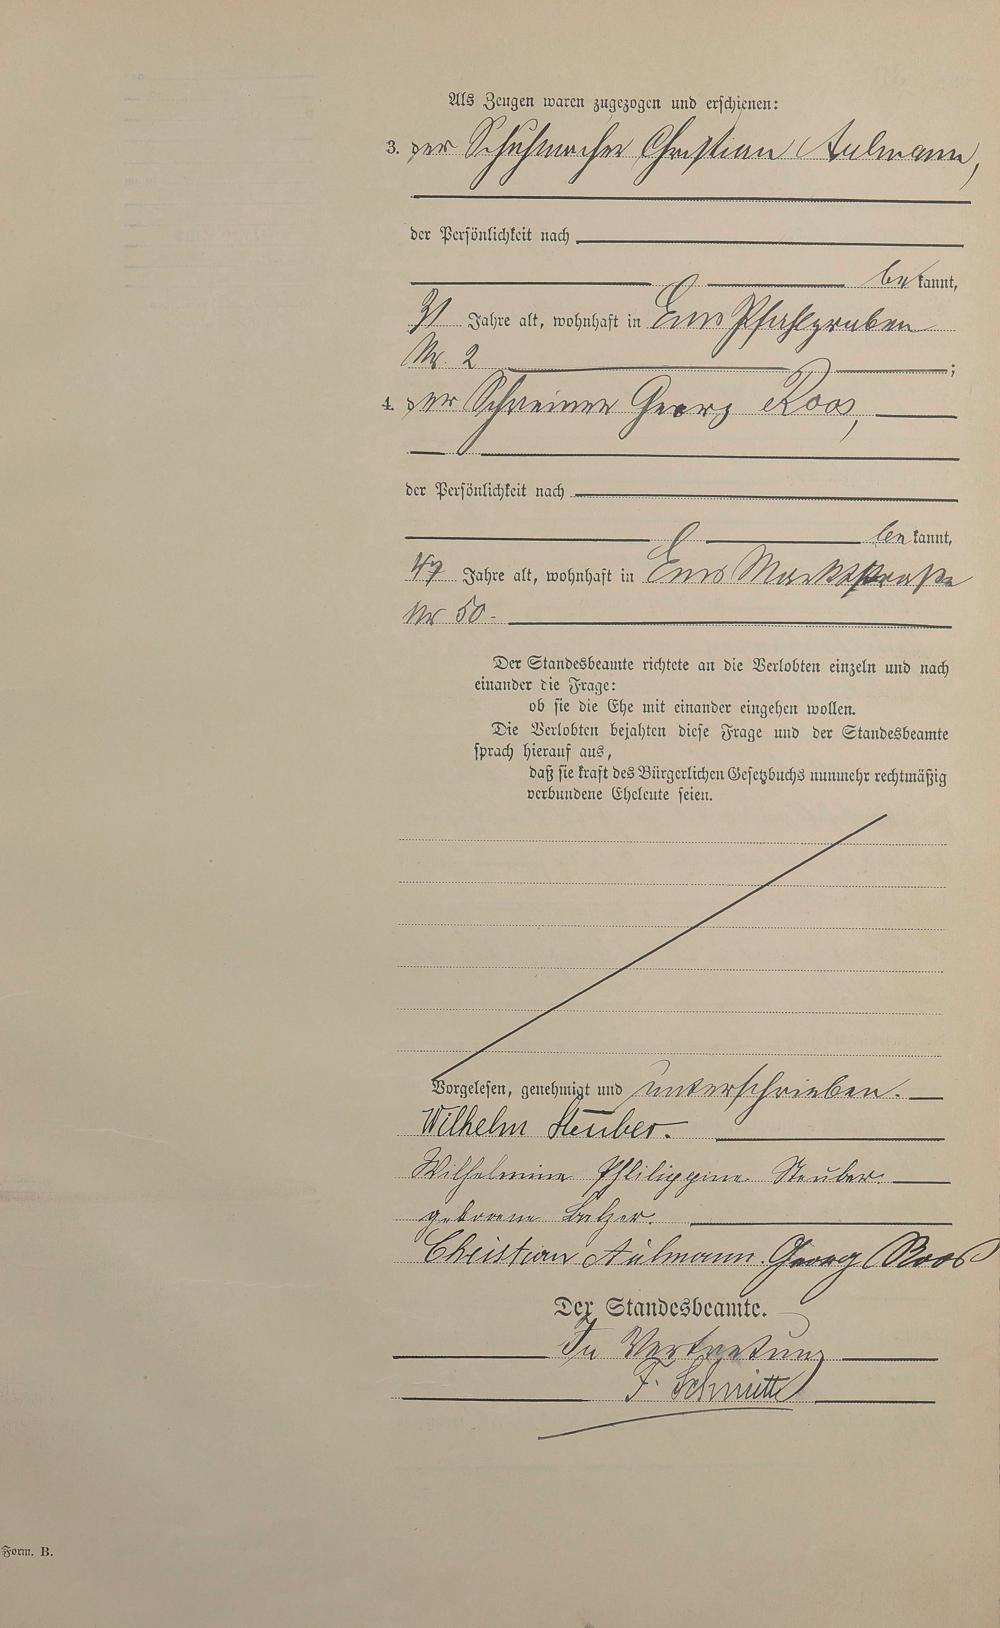 Als Zeugen waren zugezogen und erschienen:
3. der Schuhmacher Christian Aulmann,
der Persönlichkeit nach
bekannt,
31 Jahre alt, wohnhaft in Ems Pfahlgraben
Nr. 2 ;
4. der Schreiner Georg Roos,
der Persönlichkeit nach
bekannt,
47 Jahre alt, wohnhaft in Ems Marktstraße
Nr 50.
Der Standesbeamte richtete an die Verlobten einzeln und nach
einander die Frage:
ob sie die Ehe mit einander eingehen wollen.
Die Verlobten bejahten diese Frage und der Standesbeamte
sprach hierauf aus,
daß sie kraft des Bürgerlichen Gesetzbuchs nunmehr rechtmäßig
verbundene Eheleute seien.
Vorgelesen, genehmigt und unterschrieben.
Wilhelm Steuber.
Wilhelmine Phlilippine Steuber.
geborene Balzer.
Christian Aulmann. Georg Roos
Der Standesbeamte.
In Vertretung
F. Schmitt
Form. B.